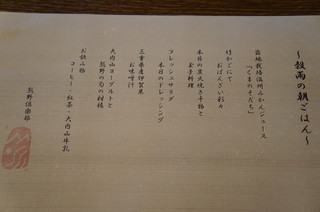 ～穀雨の朝ごはん～
当地栽培温州みかんジュース
「くまのそだち」
竹かごにて
おばんざい彩々
本日の炭火焼き干物と
玉子料理
フレッシュサラダ
本日のドレッシング
三重県産伊賀米
お味噌汁
大内山ヨーグルトと
熊野の旬の柑橘
お飲み物
コーヒー・紅茶・大内山牛乳
熊野倶楽部